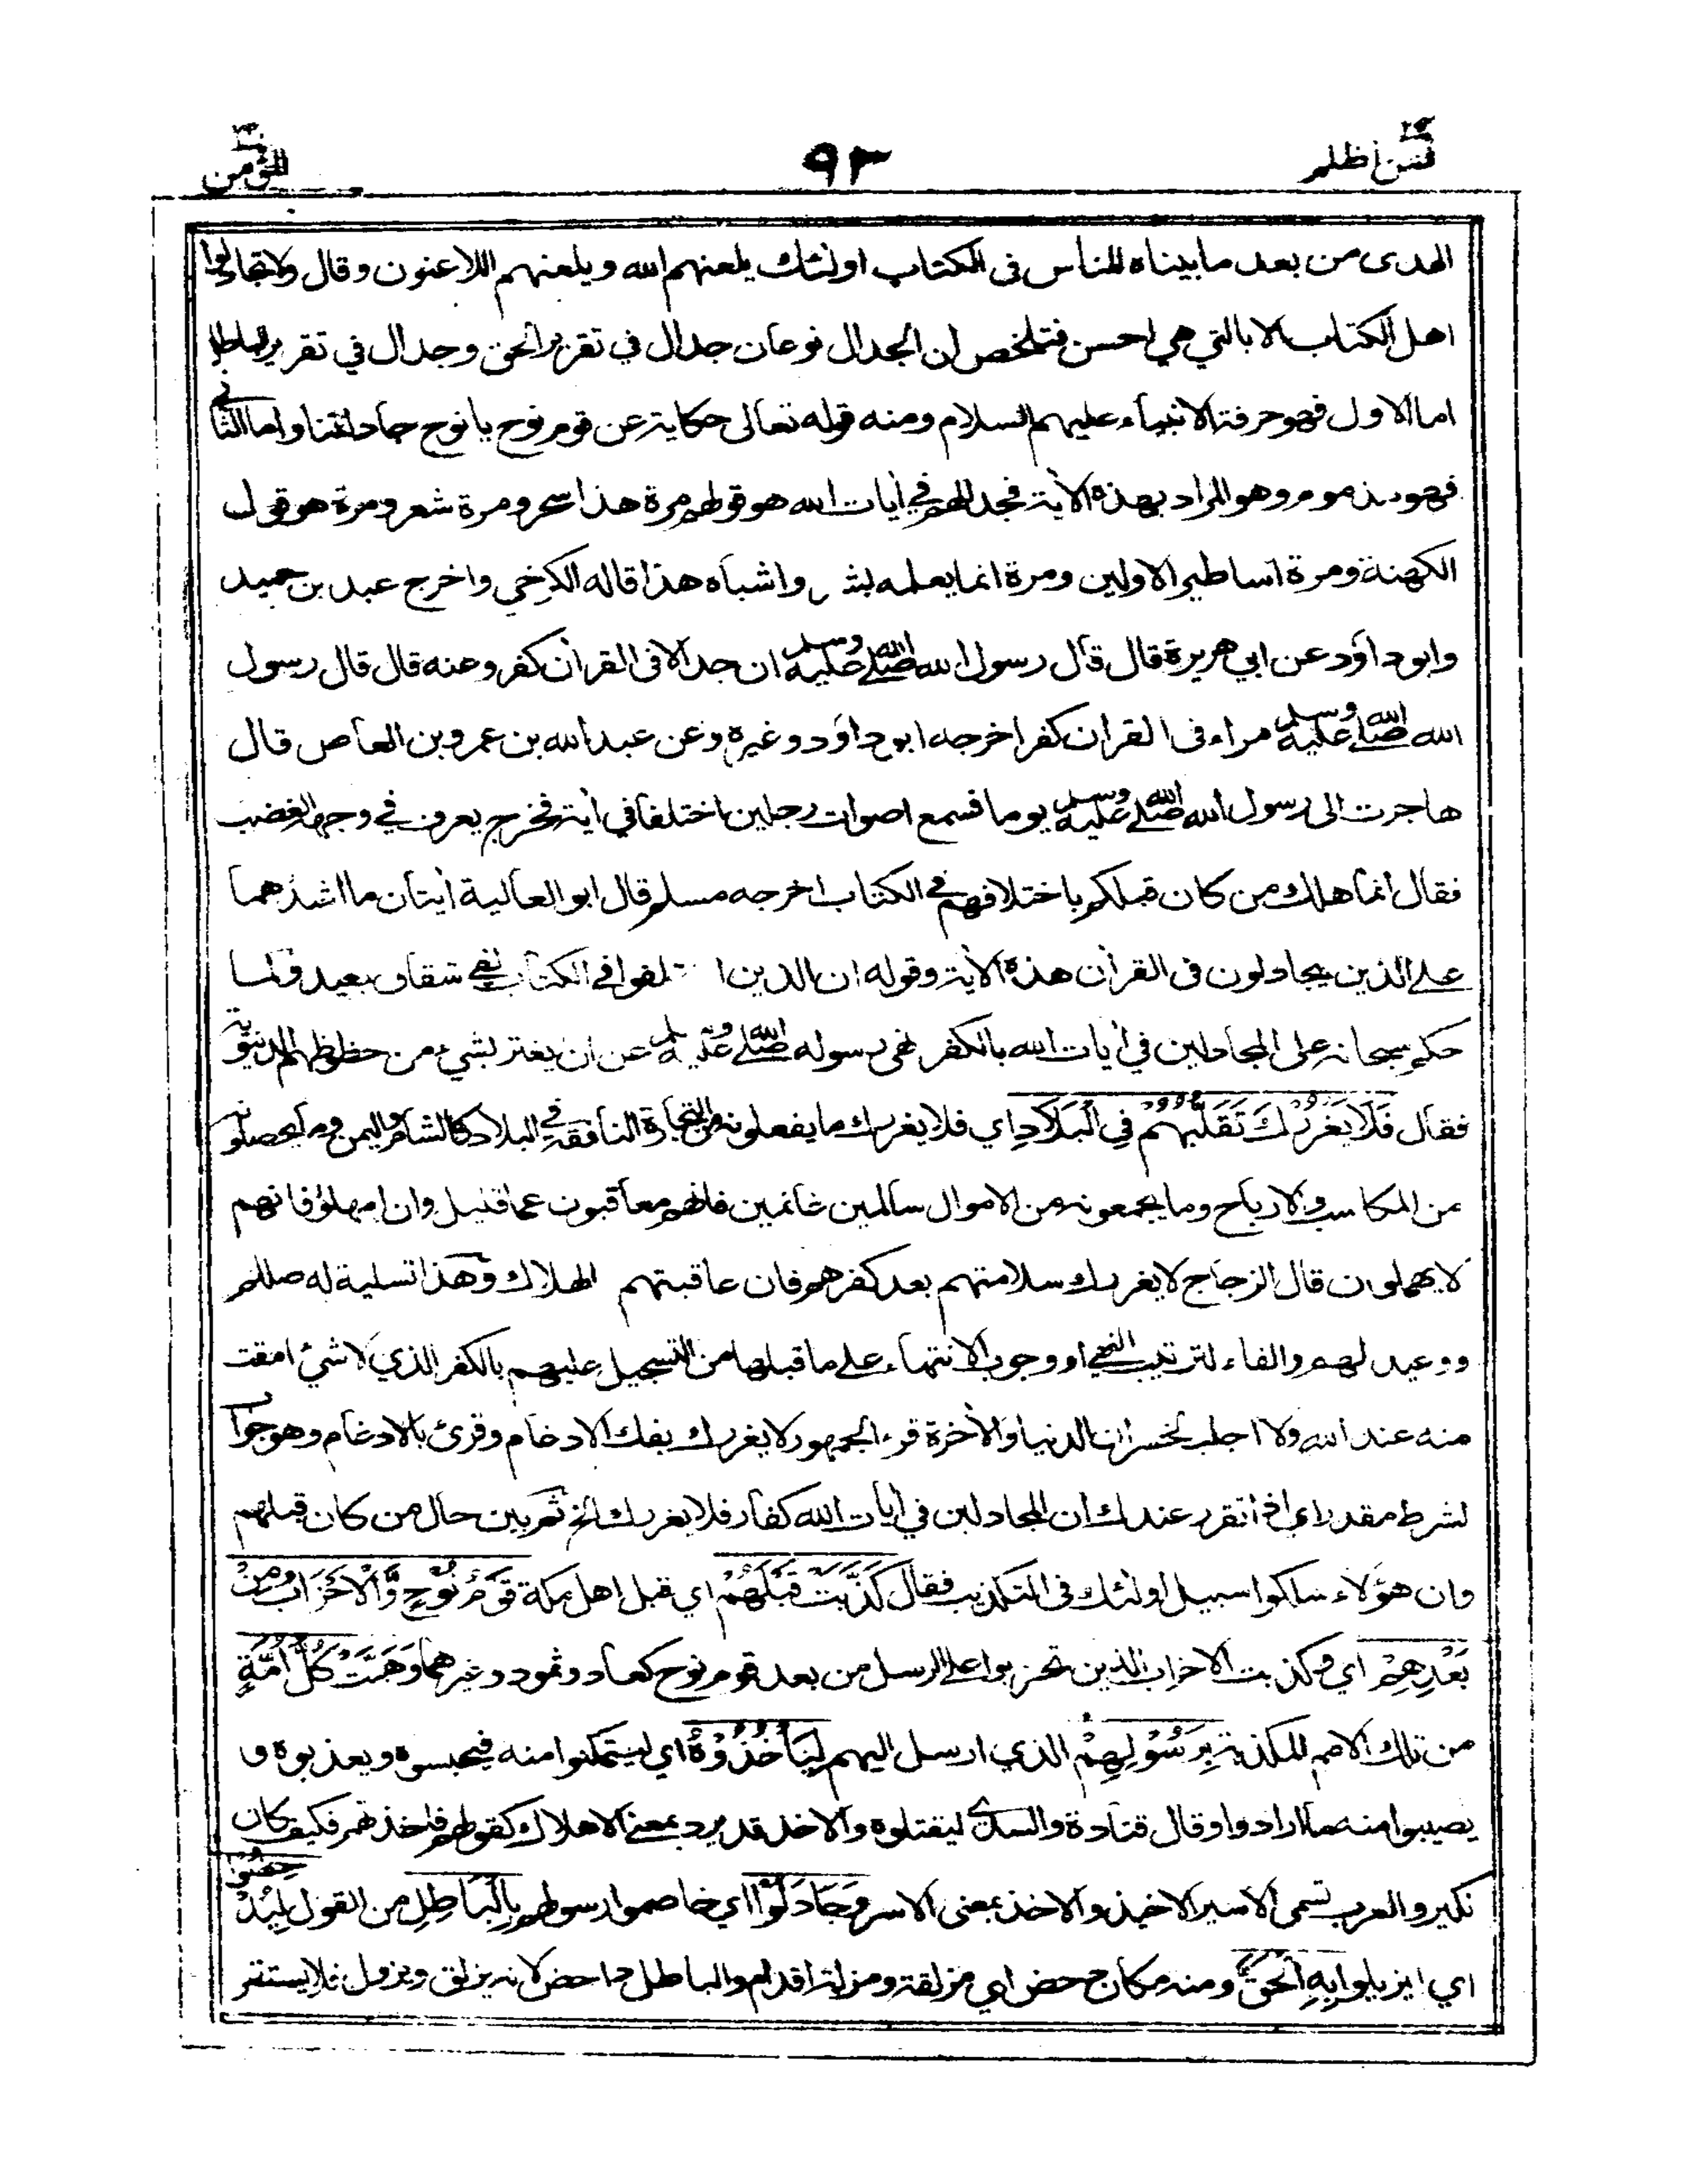 فمن أظلم ٩٣ المؤمن
الهدى من بعد ما بيناه للناس فى الكتاب اولئك يلعنهم الله ويلعنهم اللاعنون وقال ولا تجادلوا
اهل الكتاب الا بالتي هي احسن فتلخص ان الجدال نوعان جدال في تقرير الحق وجدال في تقرير الباطل
اما الاول فهو حرفة الانبياء عليهم السلام ومنه قوله تعالى حكاية عن قوم نوح يا نوح جادلتنا واما الثاني
فهو مذموم وهو المراد بهذه الأية فجدالهم في أيات الله هو قولهم مرة هذا سحر ومرة شعر ومرة هو قول
الكهنة ومرة اساطير الاولين ومرة انما يعلمه بشر واشباه هذا قاله الكرخي واخرج عبد بن حميد
وابو داؤد عن ابي هريرة قال قال رسول الله صلى الله عليه وسلم ان جدالا فى القرأن كفر وعنه قال قال رسول
الله صلى الله عليه وسلم مراء فى القرأن كفر اخرجه ابو داؤد وغيره وعن عبد الله بن عمرو بن العاص قال
هاجرت الى رسول الله صلى الله عليه وسلم يوما فسمع اصوات رجلين اختلفا في أية فخرج يعرف في وجهه الغضب
فقال انما هلك من كان قبلكم باختلافهم في الكتاب اخرجه مسلم قال ابو العالية أيتان ما اشدهما
على الذين يجادلون فى القرأن هذه الأية وقوله ان الذين اختلفوا في الكتاب لفي شقاق بعيد ولما
حكم سبحانه على المجادلين في أيات الله بالكفر نهى رسوله صلى الله عليه وسلم عن ان يغتر بشيء من حظوظهم الدنيوية
فقال فَلَا يَغْرُرْكَ تَقَلُّبُهُمْ فِي الْبِلَادِ اي فلا يغررك ما يفعلونه من التجارة النافقة في البلاد كالشام واليمن وما يحصلونه
من المكاسب والارباح وما يجمعونه من الاموال سالمين غانمين فانهم معاقبون عما قليل وان امهلوا فانهم
لا يهملون قال الزجاج لا يغررك سلامتهم بعد كفرهم فان عاقبتهم الهلاك وهذا تسلية له صللم
ووعيد لهم والفاء لترتيب النهي او وجوب الانتهاء على ما قبلها من التسجيل عليهم بالكفر الذي لا شئ امقت
منه عند الله ولا اجلب لخسران الدنيا والأخرة قرء الجمهور لا يغررك بفك الادغام وقرئ بالادغام وهو جواب
لشرط مقدر اي اذا تقرر عندك ان المجادلين في أيات الله كفار فلا يغررك الخ ثم بين حال من كان قبلهم
وان هؤلاء سلكوا سبيل اولئك فى التكذيب فقال كَذَّبَتْ قَبْلَهُمْ اي قبل اهل مكة قَوْمُ نُوْحٍ وَّالْاَحْزَابُ مِنْ
بَعْدِهِمْ اي وكذبت الاحزاب الذين تحزبوا على الرسل من بعد قوم نوح كعاد وثمود وغيرهما وَهَمَّتْ كُلُّ اُمَّةٍ
من تلك الامم المكذبة بِرَسُوْلِهِمْ الذي ارسل اليهم لِيَأْخُذُوْهُ اي ليتمكنوا منه فيحبسوه ويعذبوه و
يصيبوا منه ما ارادوا وقال قتادة والسدي ليقتلوه والاخذ قد يرد بمعنى الاهلاك كقوله فاخذتهم فكيف كان
نكير والعرب تسمى الاسير الاخيذ والاخذ بمعنى الاسر وَجَادَلُوْا اي خاصموا رسولهم بِالْبَاطِلِ من القول لِيُدْحِضُوْا
اي ليزيلوا بِهِ الْحَقَّ ومنه مكان دحض اي مزلقة ومزلة اقدام والباطل داحض لانه يزلق ويزول فلا يستقر